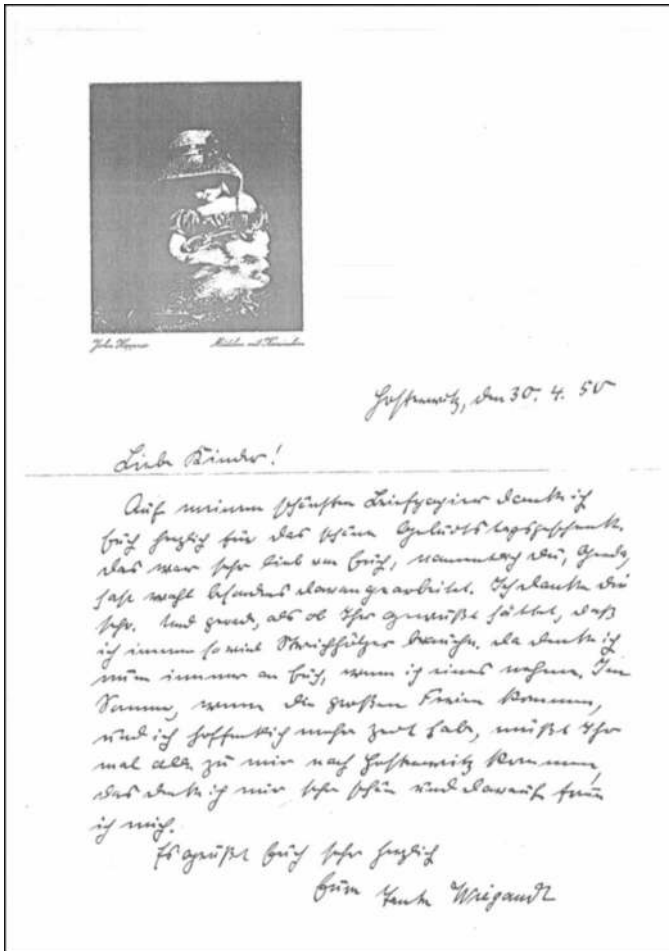 John Hoppner Mädchen mit Kaninchen
Hosterwitz, den 30. 4. 50
Liebe Kinder!
Auf meinem schönsten Briefpapier danke ich
Euch herzlich für das schöne Geburtstagsgeschenk.
Das war sehr lieb von Euch, namentlich Du,
hast wohl besonders daran gearbeitet. Ich danke Dir
sehr. Und gerad, als ob Ihr gewußt hättet, daß
ich immer so viel Streichhölzer brauche. Da denke ich
nun immer an Euch, wenn ich eines nehme. Im
Sommer, wenn die großen Ferien kommen,
und ich hoffentlich mehr Zeit habe, müßt Ihr
mal alle zu mir nach Hosterwitz kommen,
das denke ich mir sehr schön und darauf freue
ich mich.
Es grüßt Euch sehr herzlich
Eure Tante Wiegandt